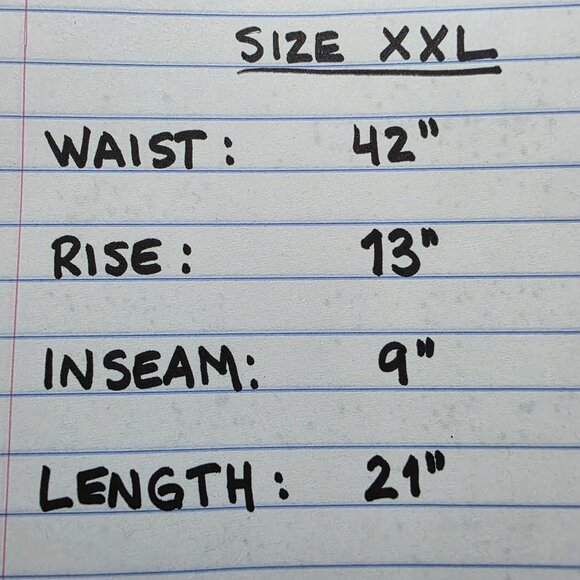 SIZE XXL
WAIST: 42"
RISE: 13"
INSEAM: 9"
LENGTH: 21"